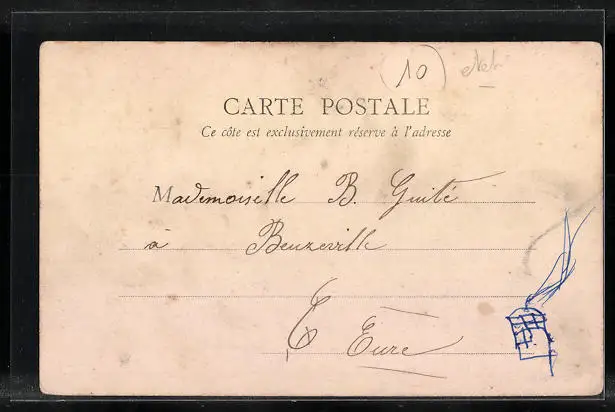 (10)
CARTE POSTALE
Ce côte est exclusivement réservé à l'adresse
Mademoiselle B. Guité
à Beuzeville
Eure